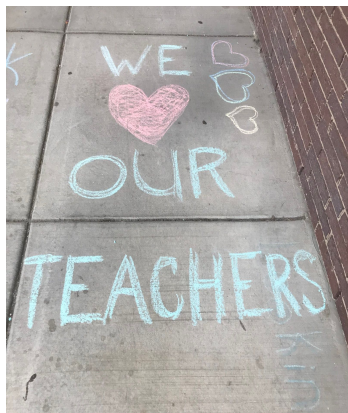 WE
OUR
TEACHERS
kin